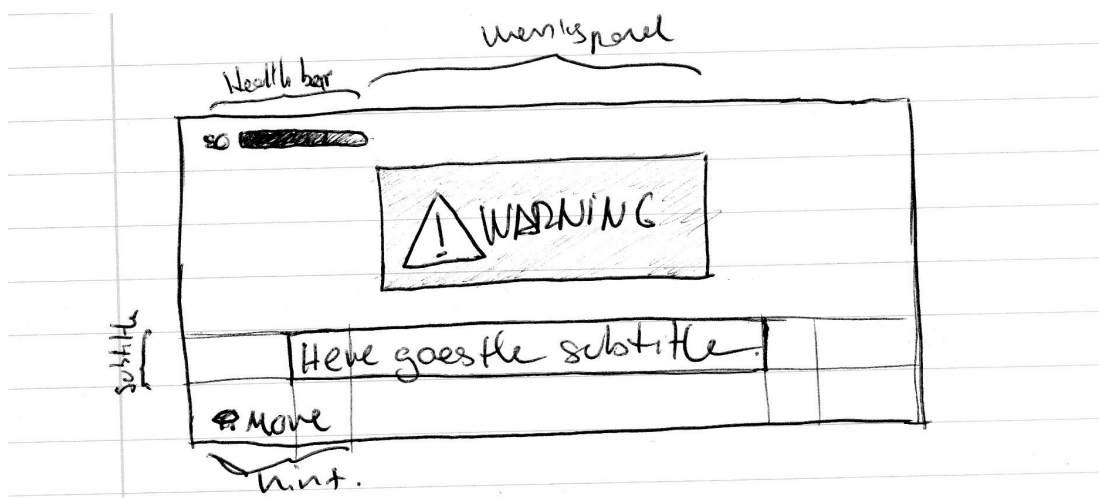 Health bar
50
WARNING
Subtitle
Here goes the subtitle.
Move
hint.